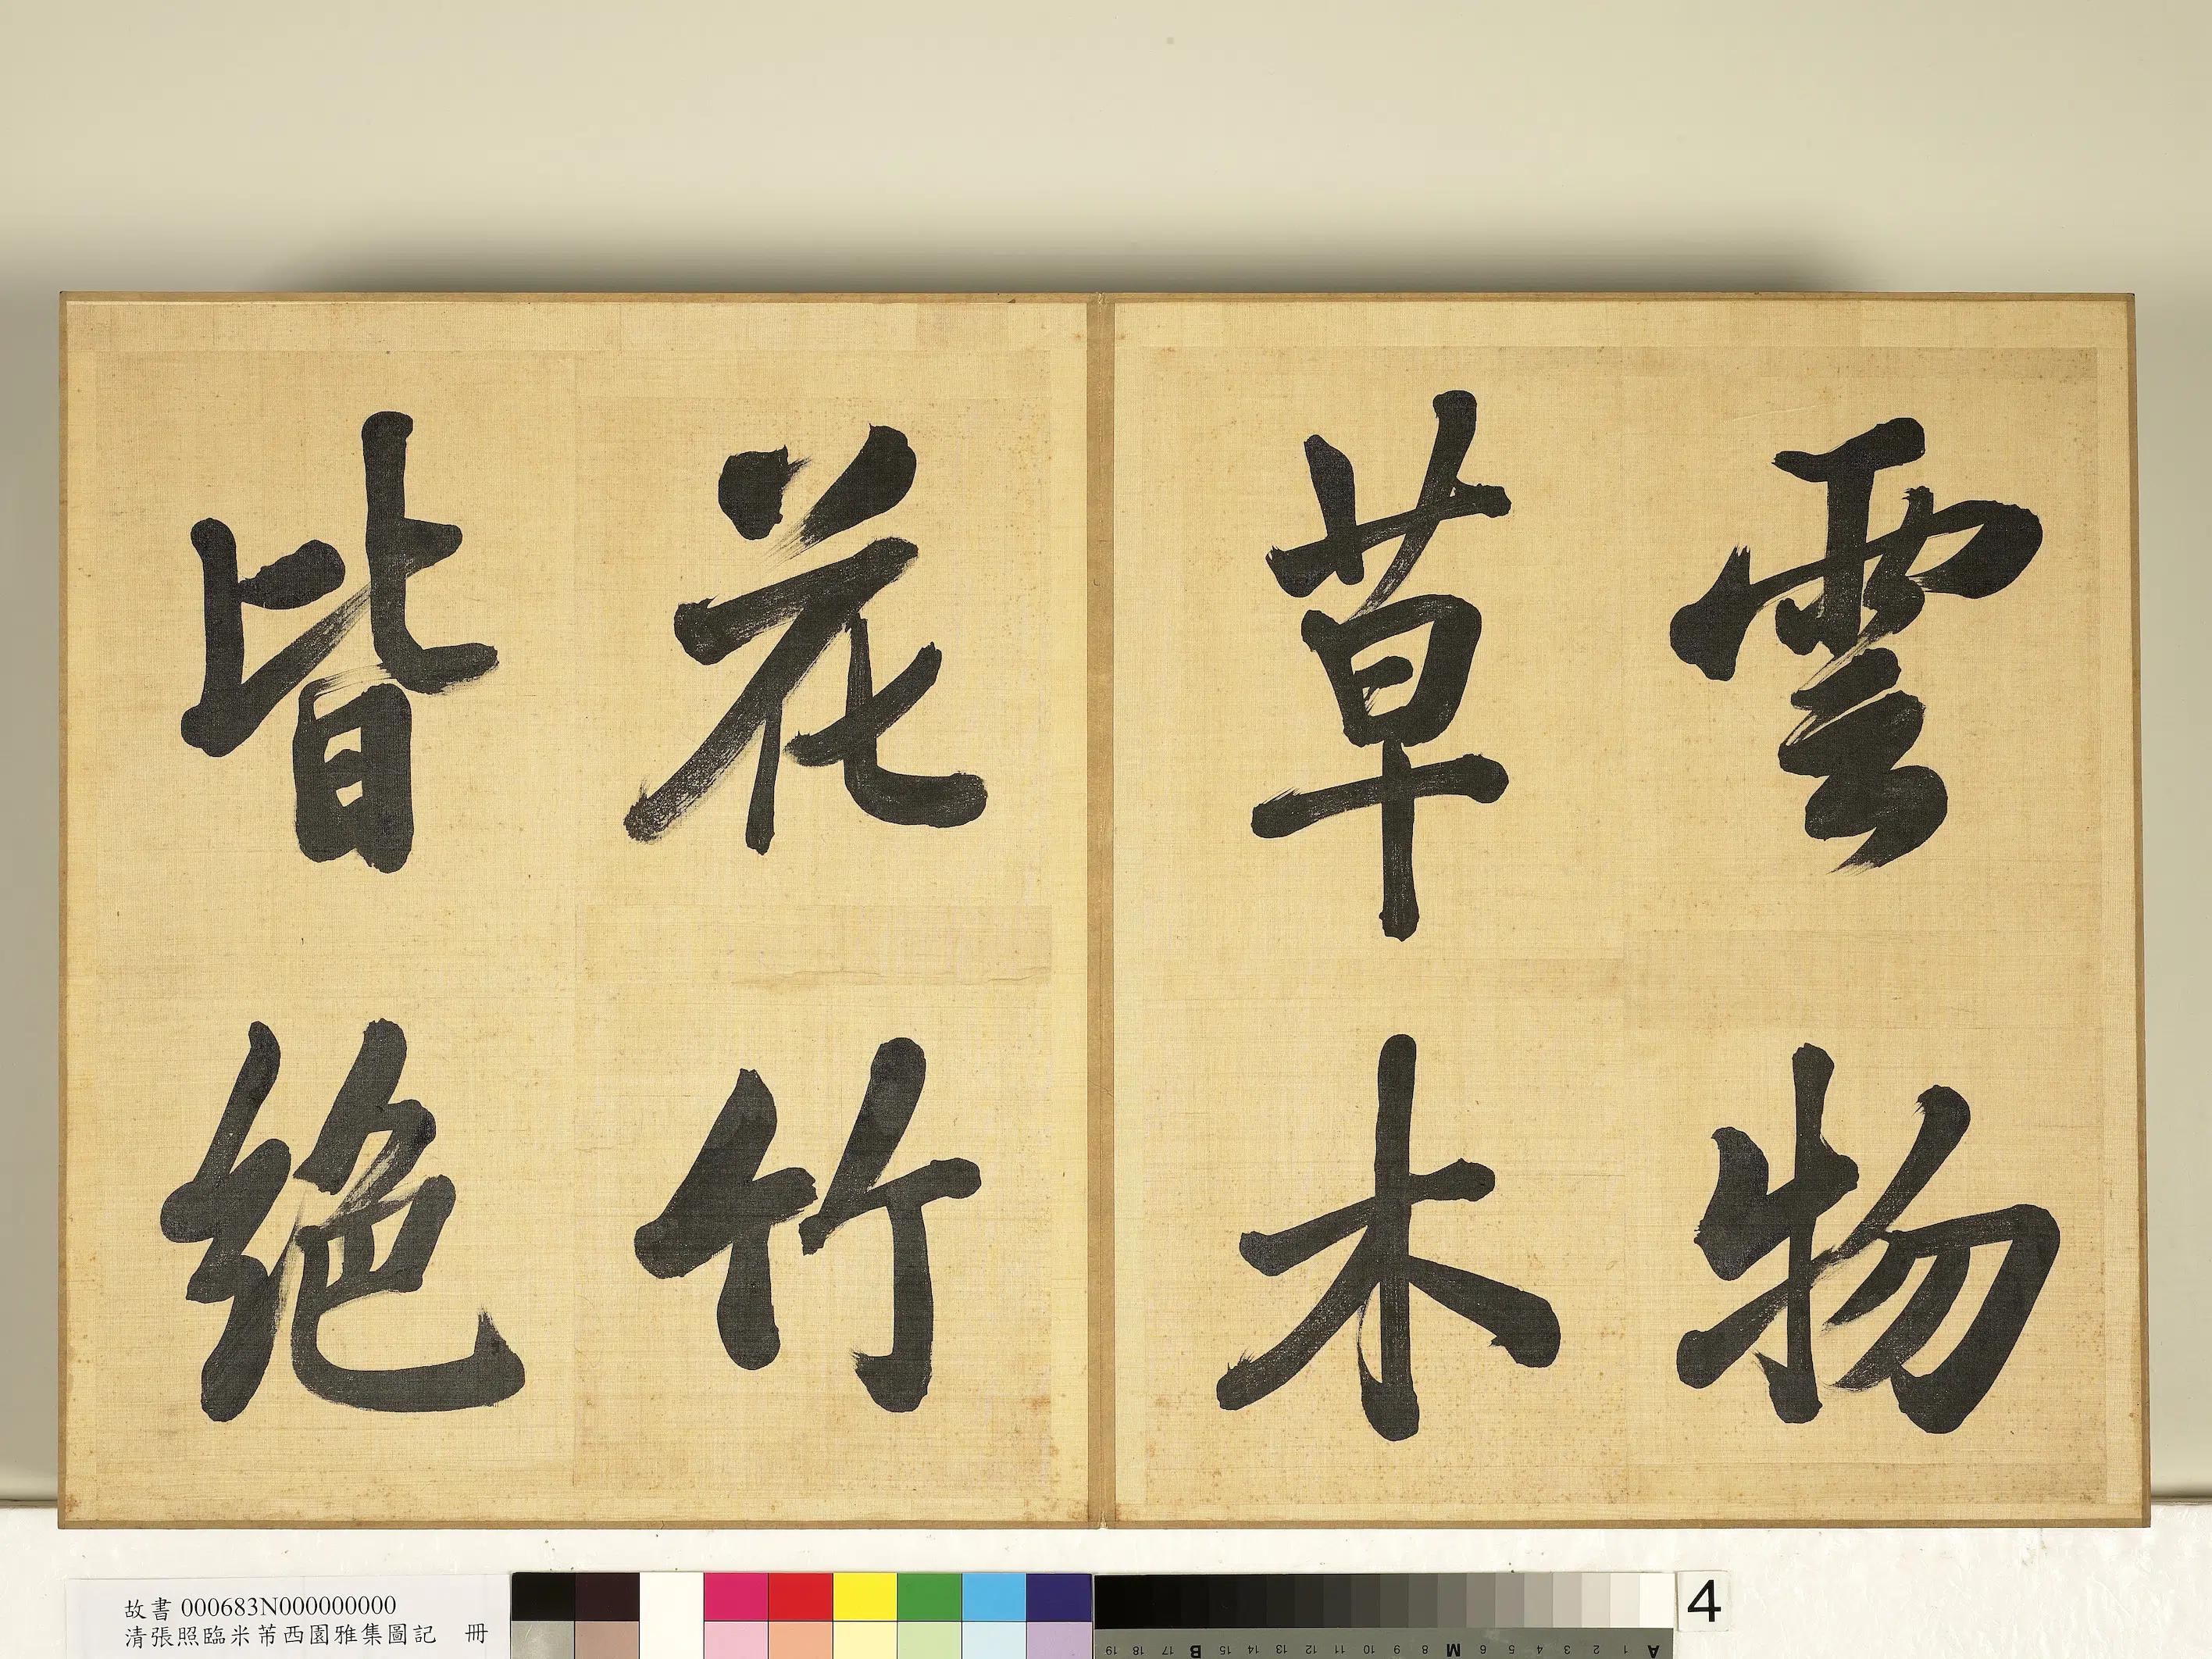 雲物
草木
花竹
皆絶
故書 000683N000000000
清張照臨米芾西園雅集圖記 冊
4
A 1 2 3 4 5 6 M 8 9 10 11 12 13 14 15 B 17 18 19